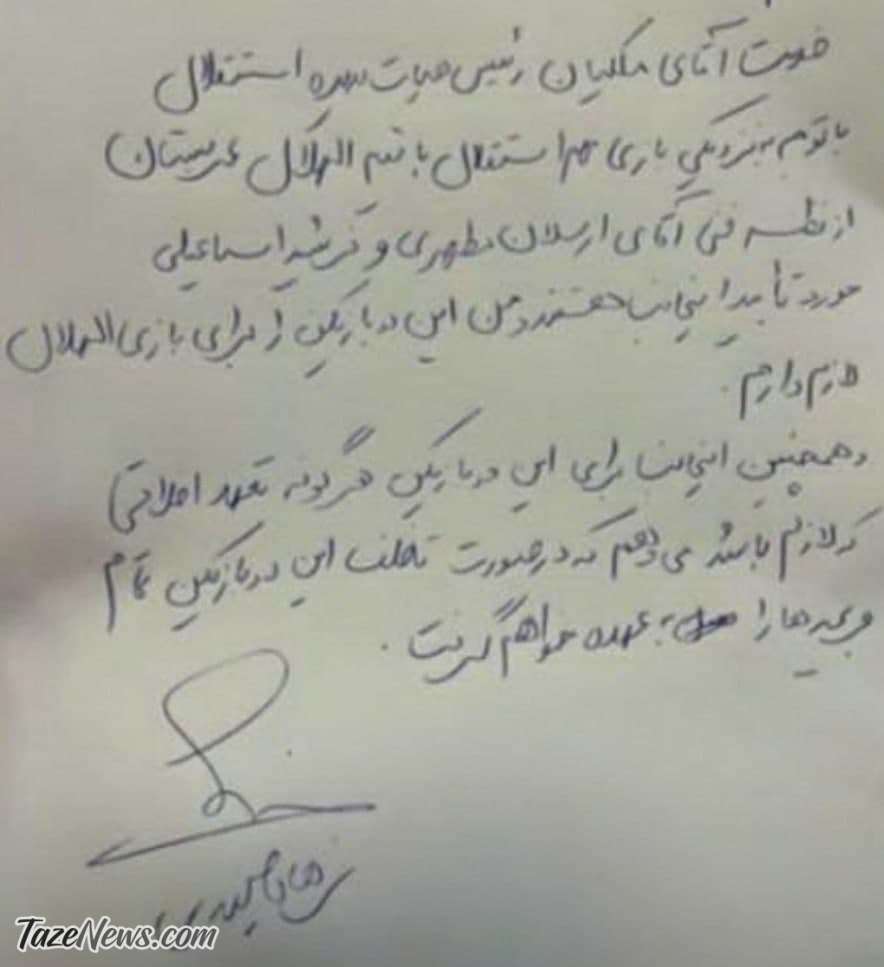 خدمت آقای ملکیان رئیس هیات مدیره استقلال
با توجه به نزدیکی بازی مهم استقلال با تیم الهلال عربستان
از نظر فنی آقای ارسلان مطهری و فرشید اسماعیلی
مورد تأیید اینجانب هستند و من این دو بازیکن را برای بازی الهلال
لازم دارم.
و همچنین اینجانب برای این دو بازیکن هرگونه تعهد اخلاقی
که لازم باشد می دهم که در صورت تخلف این دو بازیکن تمام
جریمه ها را به عهده خواهم گرفت.
TazeNews.com